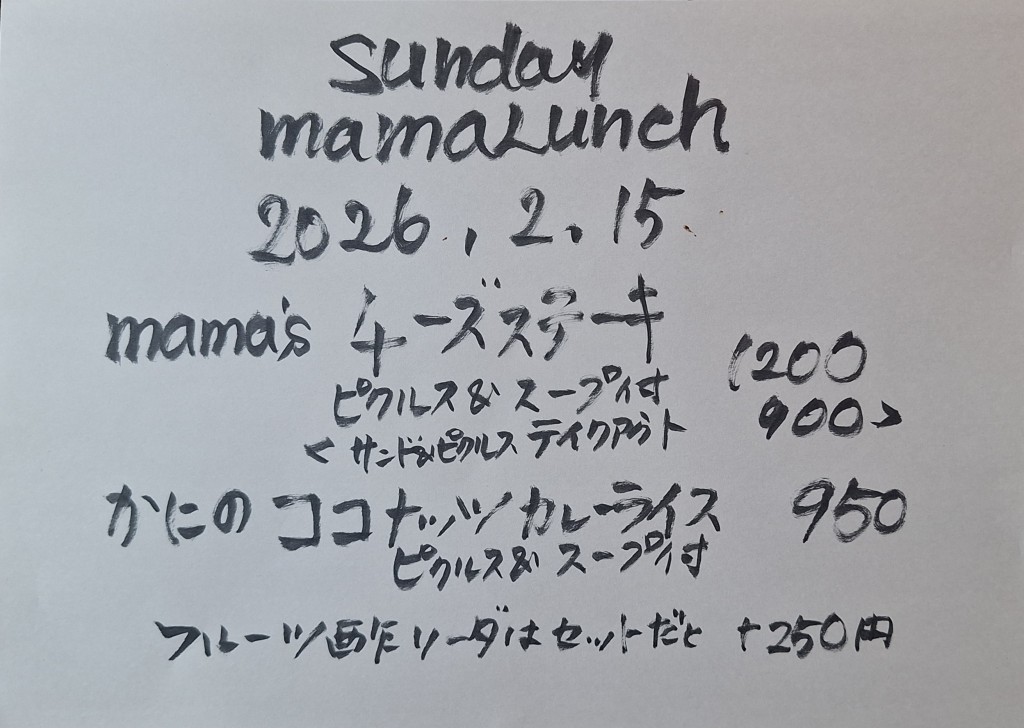 sunday
mamaLunch
2026.2.15
mama's チーズステーキ 1200
ピクルス&スープ付
<サンド&ピクルス テイクアウト 900>
かにのココナッツカレーライス 950
ピクルス&スープ付
フルーツ酢ソーダはセットだと +250円